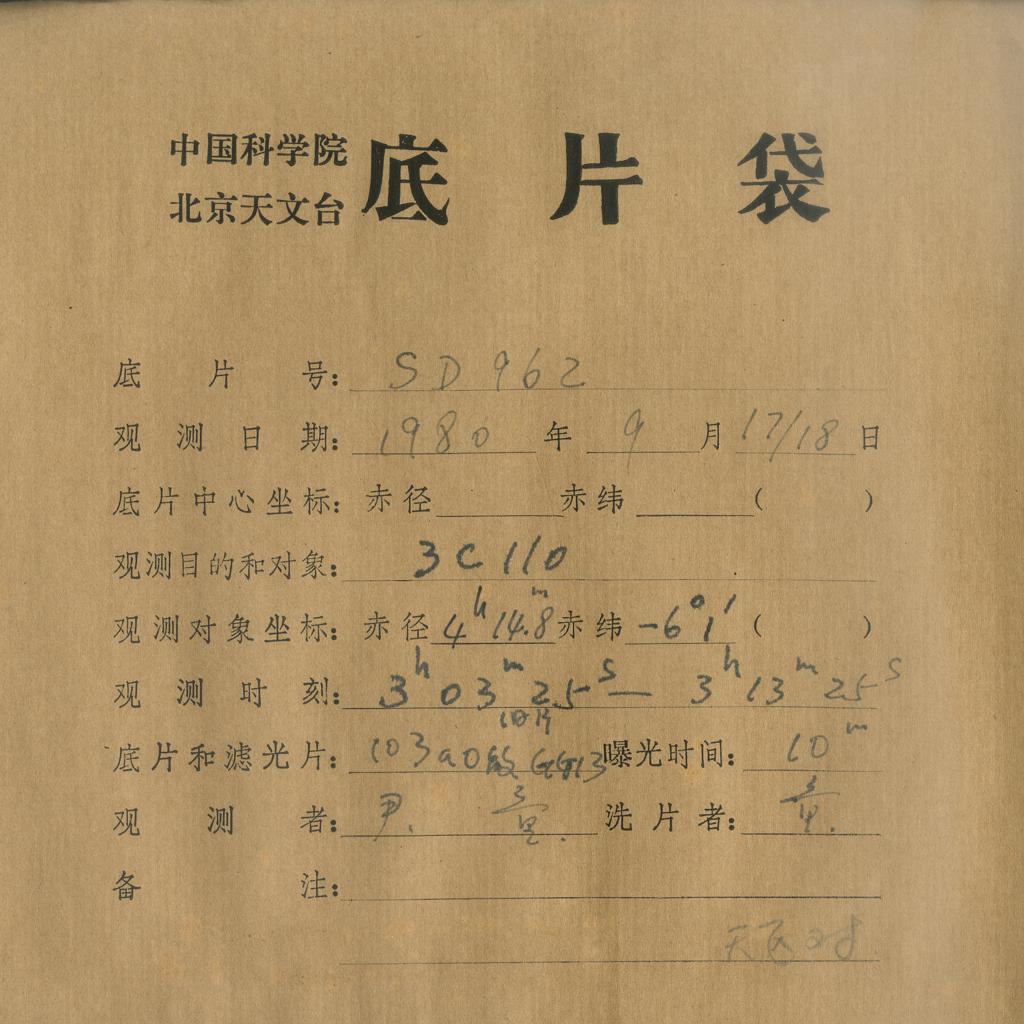 中国科学院
北京天文台
底片袋
底片号: SD 962
观测日期: 1980 年 9 月 17/18 日
底片中心坐标: 赤径 赤纬 ( )
观测目的和对象: 3C110
观测对象坐标: 赤径 4ʰ14.8ᵐ 赤纬 -6°1′ ( )
观测时刻: 3ʰ03ᵐ25ˢ — 3ʰ13ᵐ25ˢ
旧片
底片和滤光片: 103aO敏 GG13 曝光时间: 10ᵐ
观测者: 尹. 童. 洗片者: 童.
备注: